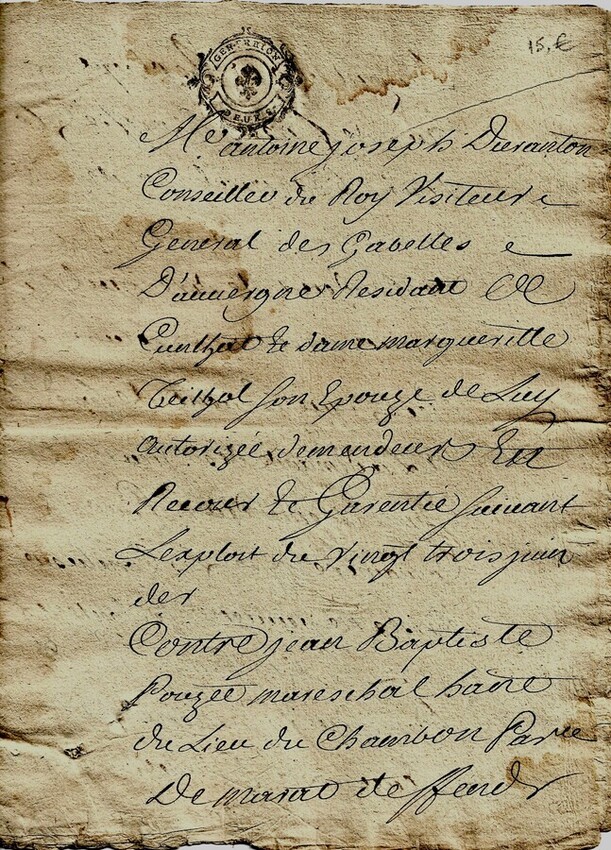 15. €
GEN
Me antoine joseph Duranton
Conseiller du Roy Visiteur
General des Gabelles
D'auvergne Residant
Cunlhat & dame margueritte
Teilhol son Epouze de Luy
autorizée demandeurs En
Recour & Garentie suivant
Lexploit du vingt trois juin
der
Contre jean Baptiste
Pouzée mareschal
du Lieu du Chambon
De marat deffendr